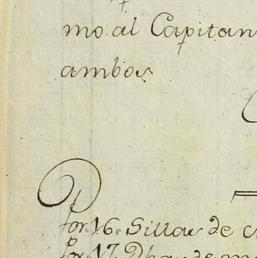 mo al Capitan
ambos
Por 16. Sillas de
Por 17. Dhas de